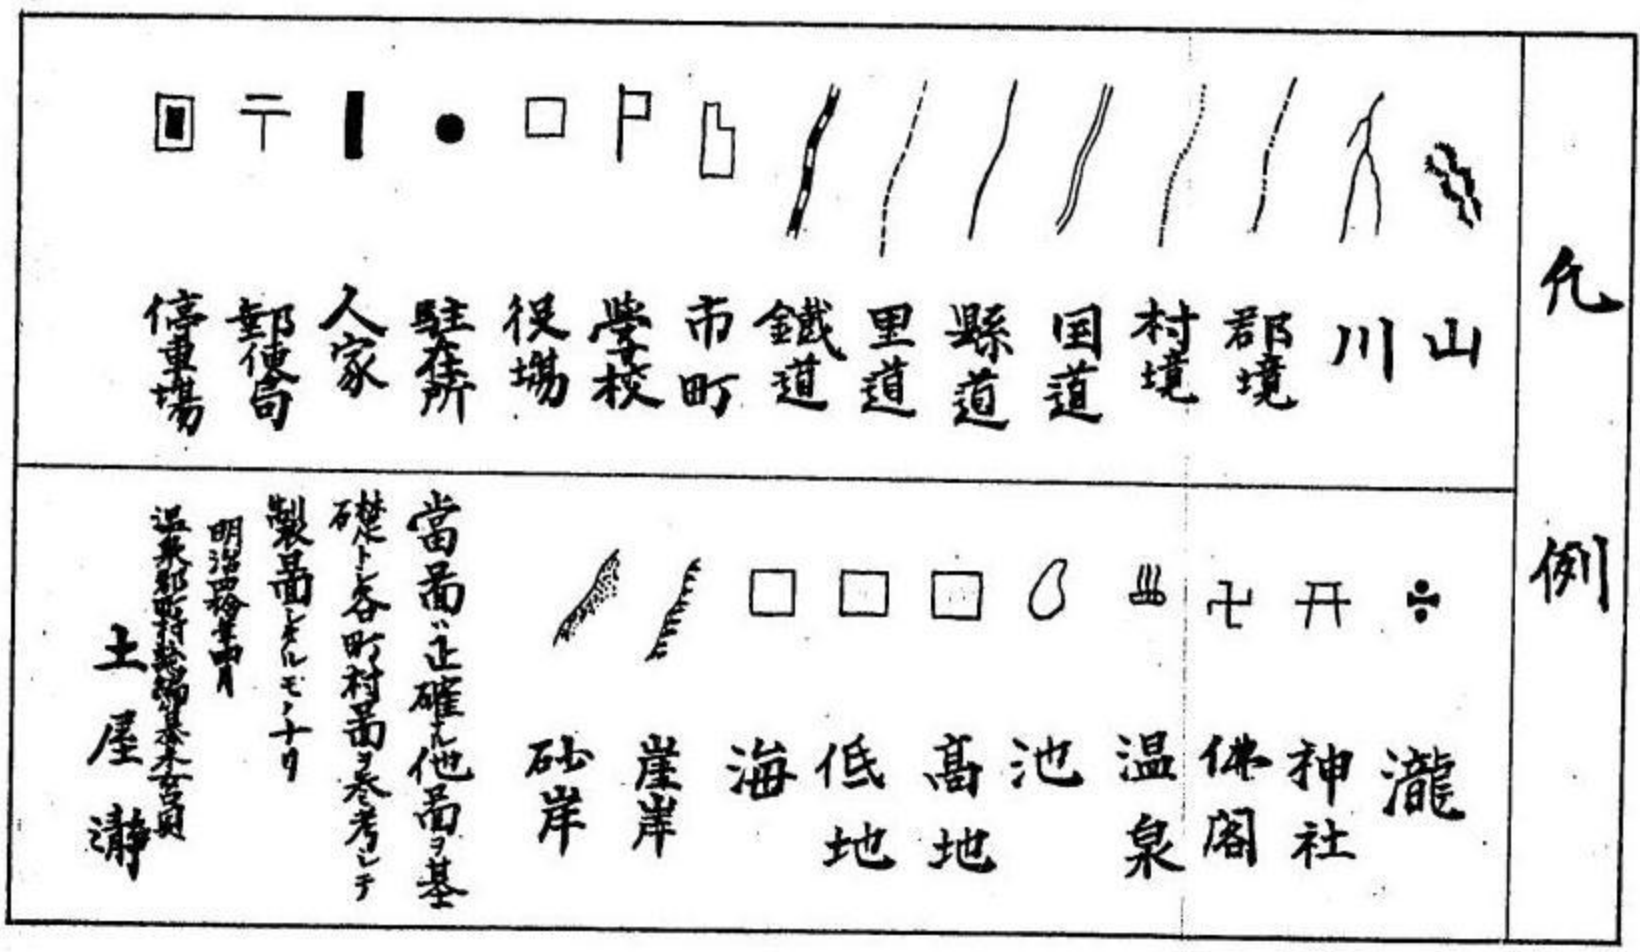 凡例
山
川
郡境
村境
国道
縣道
里道
鐵道
市町
學校
役場
駐在所
人家
郵便局
停車場
瀧
神社
佛閣
温泉
池
高地
低地
海
崖岸
砂岸
當啚ハ正確ナル他啚ヲ基
礎トシ各町村啚ヲ参考シテ
製啚シタルモノナリ
明治四拾年四月
温泉郡町村
土屋瀞